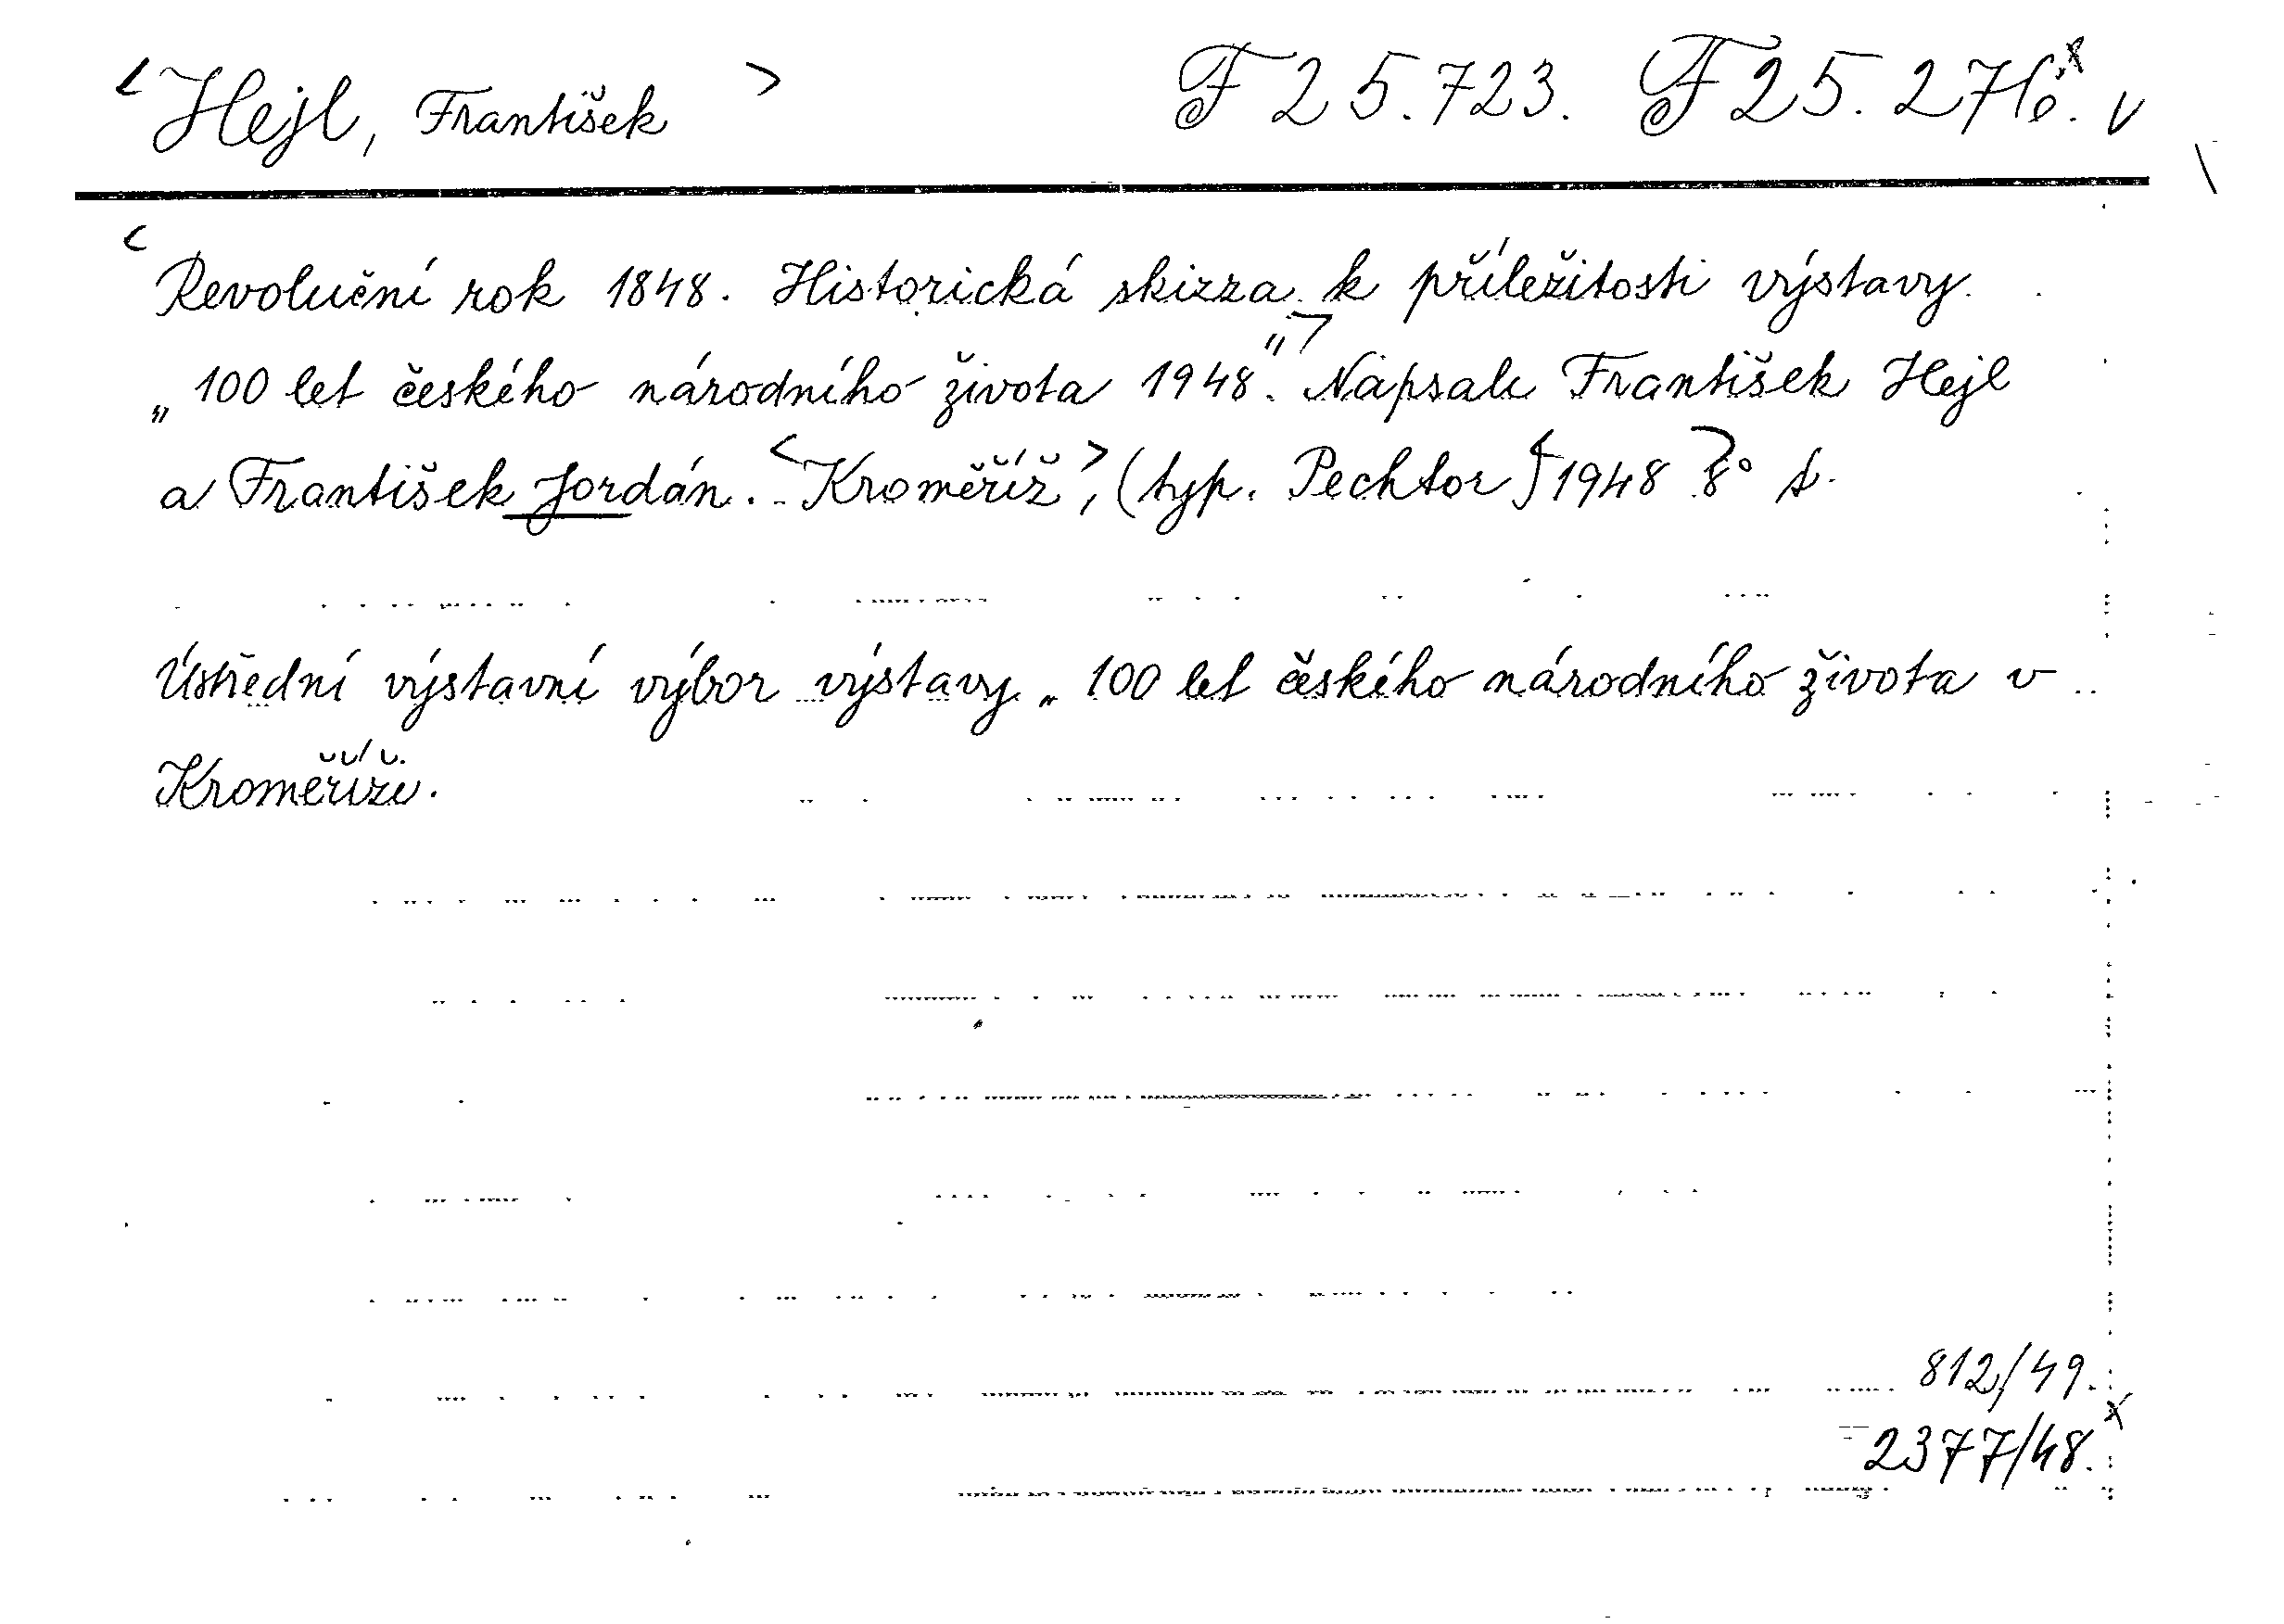 <Hejl, František> F 25.723. F 25.276.x v
<Revoluční rok 1848. Historická skizza k příležitosti výstavy
„100 let českého národního života 1948".> Napsali František Hejl
a František Jordán. - <Kroměříž>, (typ. Pechtor) <1948> 8° s.
Ústřední výstavní výbor výstavy „100 let českého národního života v
Kroměříži.
812/49.
2377/48.x